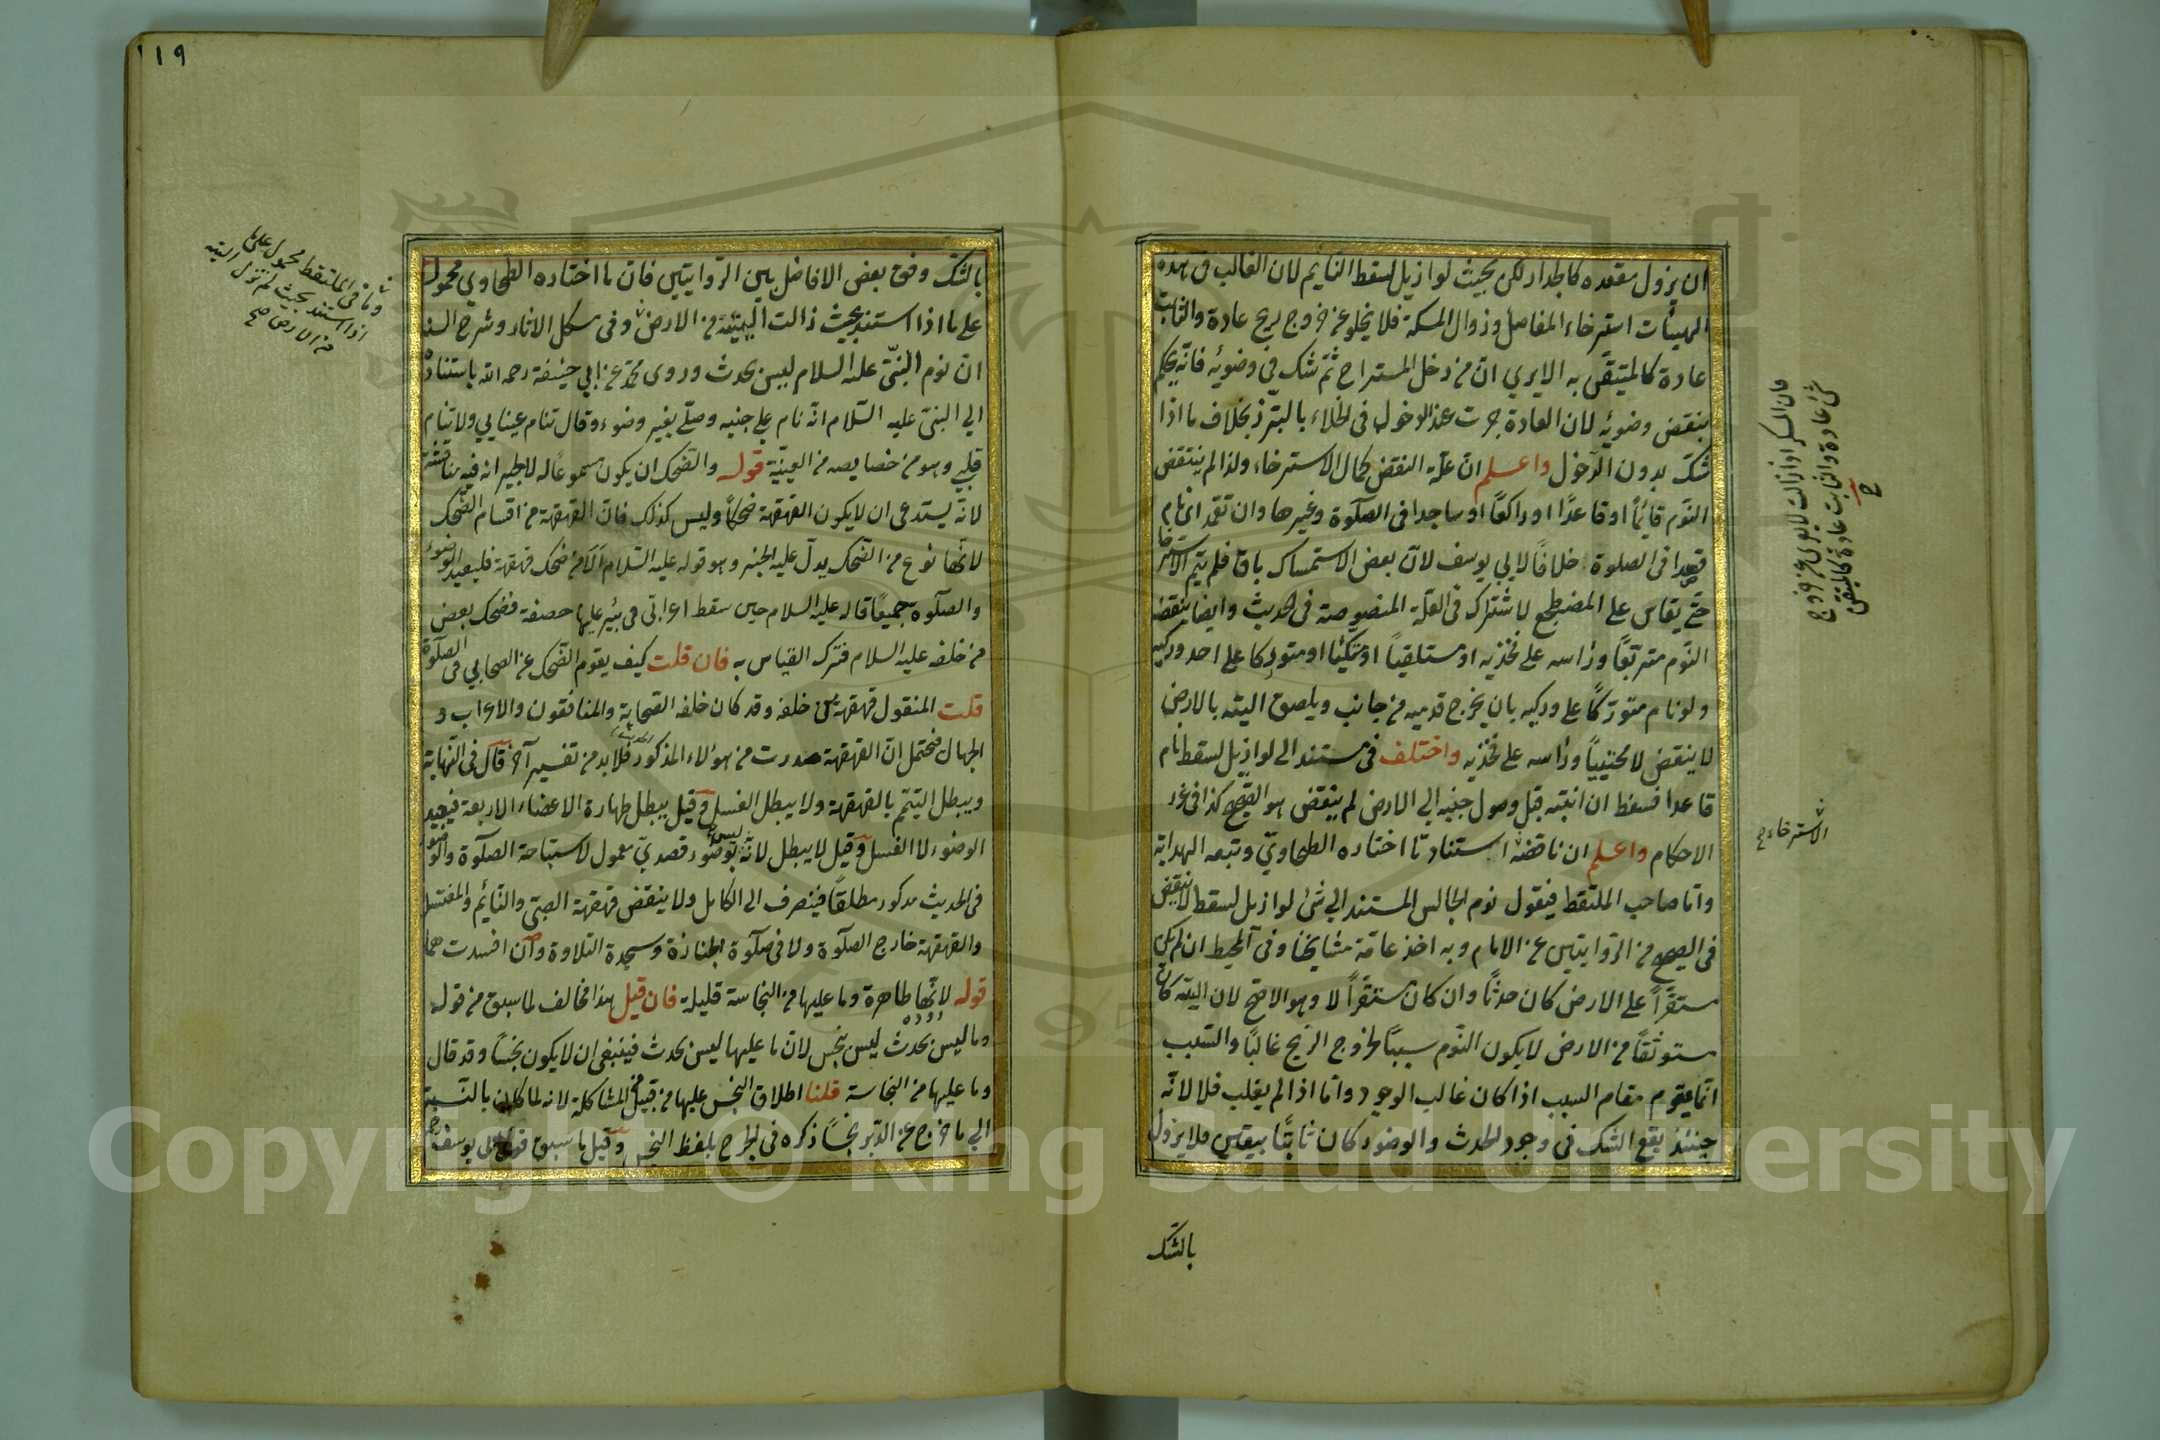 ان يزول مقعده كالجدار لكن بحيث لو ازيل لسقط النايم لان الغالب فى هذه
الهيئات استرخاء المفاصل وزوال المسكة فلا يخلو عن خروج ريح عادة والثابت
عادة كالمتيقن به الايري ان من دخل المستراح ثم شك في وضوئه فانه يحكم
بنقض وضوئه لان العادة جرت عند الدخول فى الخلاء بالتبرز بخلاف ما اذا
شك بدون الدخول واعلم ان علة النقض كمال الاسترخاء ولذا لم ينتقض
النوم قائماً او قاعدًا او راكعًا او ساجدا فى الصلوة وغيرها وان تعمد ان نام
قصدا فى الصلوة خلافًا لابي يوسف لان بعض الاستمساك باق فلم يتم الاسترخا
حتى يقاس على المضطجع لاشتراك فى العلة المنصوصة فى الحديث وايضا ينقضه
النوم متربعًا ورأسه على فخذيه او مستلقياً او متكئا او متوركا على احد وركيه
ولو نام متوركًا على وركيه بان يخرج قدميه من جانب ويلصق اليتيه بالارض
لا ينقض لا محتبياً ورأسه على فخذيه واختلف فى مستند الى لو ازيل لسقط نام
قاعدا فسقط ان انتبه قبل وصول جنبه الى الارض لم ينقض هو الصحيح كذا فى غرر
الاحكام واعلم ان ناقضه استناد تا اختاره الطحاوي وتبعه الهداية
واما صاحب الملتقط فيقول نوم الجالس المستند الى شئ لو ازيل لسقط لا ينقض
فى الصحيح من الروايتين عن الامام وبه اخذ عامة مشايخنا وفى المحيط ان لم يكن
مستقراً على الارض كان حدثًا وان كان مستقراً لا وهو الاصح لان اليتيه كان
مستوثقًا من الارض لا يكون النوم سببًا لخروج الريح غالبًا والسبب
انما يقوم مقام السبب اذا كان غالب الوجود واما اذا لم يغلب فلا لانه
حينئذ يقع الشك فى وجود الحدث والوضوء كان ثابتًا بيقين فلا يزول
بالشك
فان المسكة اذا زالت لا يخلو عن خروج
شئ عادة والثابت عادة كالمتيقن
الاسترخاء
١١٩
بالشك وفق بعض الافاضل بين الروايتين فان ما اختاره الطحاوي محمول
على ما اذا استند بحيث زالت اليتيه من الارض وفى مشكل الاثار وشرح السنة
ان نوم النبى عليه السلام ليس بحدث وروى محمد عن ابي حنيفة رحمه الله باستناده
الى النبى عليه السلام انه نام على جنبه وصلى بغير وضوء وقال تنام عيناي ولا ينام
قلبى وهو من خصايصه من العينية قوله والضحك ان يكون مسموعًا له لا لجيرانه فيه مناقشة
لانه يستدعى ان لا يكون القهقهة ضحكًا وليس كذلك فان القهقهة من اقسام الضحك
لانها نوع من الضحك يدل عليه الخبر وهو قوله عليه السلام الا من ضحك قهقهة فليعيد الوضوء
والصلوة جميعًا قاله عليه السلام حين سقط اعرابى فى بئر عليها خصفة فضحك بعض
من خلفه عليه السلام فترك القياس به فان قلت كيف يقوم الضحك عن الصحابي فى الصلوة
قلت المنقول قهقهة من خلفه وقد كان خلفه الصحابة والمنافقون والاعراب و
الجهال فيحتمل ان القهقهة صدرت من هؤلاء المذكور فلا بد من تفسير آخر قال فى النهاية
ويبطل التيمم بالقهقهة ولا يبطل الغسل وقيل يبطل طهارة الاعضاء الاربعة فيعيد
الوضوء لا الغسل وقيل لا يبطل لانه ليس بوضوء قصدي معمول لاستباحة الصلوة والوضوء
فى الحديث مذكور مطلقاً فينصرف الى الكامل ولا ينقض قهقهة الصبى والنائم والمغتسل
والقهقهة خارج الصلوة ولا فى صلوة الجنازة وسجدة التلاوة وان افسدت هما
قوله لانها طاهرة وما عليها من النجاسة قليلة فان قيل هذا مخالف لما سبق من قوله
وما ليس بحدث ليس بنجس لان ما عليها ليس بحدث فينبغى ان لا يكون نجسًا وقد قال
وما عليها من النجاسة قلنا اطلاق النجس عليها من قبيل المشاكلة لانه لما كان بالنسبة
الى ما خرج عن الدبر نجسًا ذكره فى الجرح بلفظ النجس وقيل ما سبق قول ابى يوسف
وما فى الملتقط محمول على ما
اذا استند بحيث لم تزل اليتيه
من الارض صح
Copyright © King Saud University